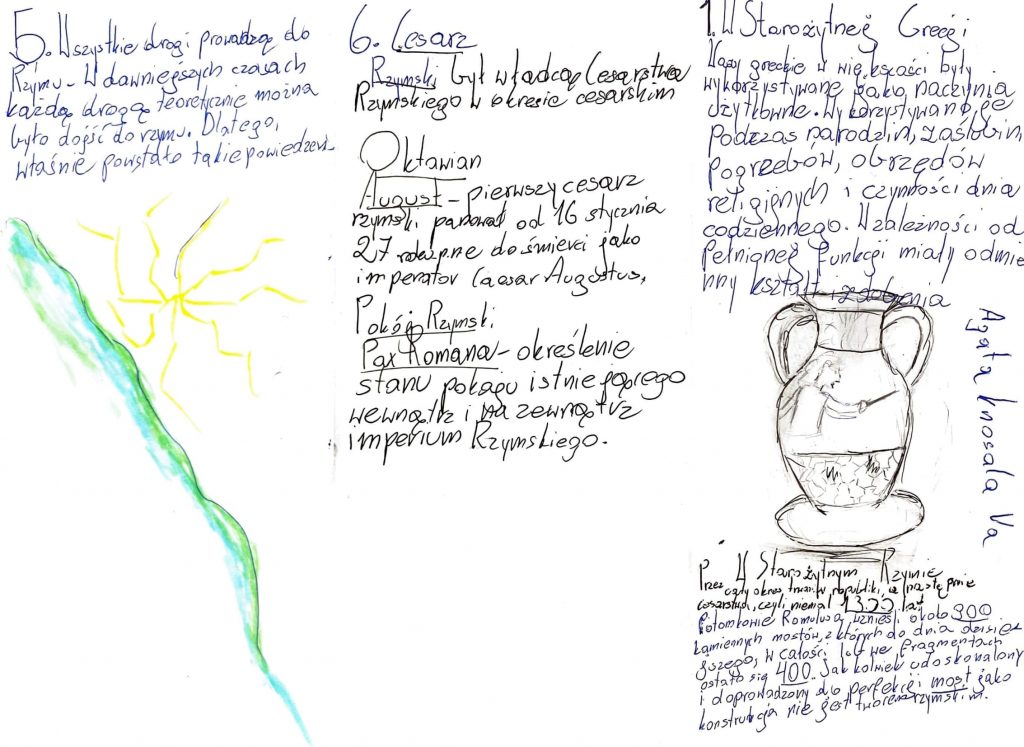 5. Wszystkie drogi prowadzą do
Rzymu. W dawniejszych czasach
każdą drogą teoretycznie można
było dojść do rzymu. Dlatego,
właśnie powstało takie powiedzeni
6. Cesarz
Rzymski był władcą Cesarstwa
Rzymskiego w okresie cesarskim
Oktawian
August - pierwszy cesarz
rzymski panował od 16 stycznia
27 do śmierci jako
imperator Caesar Augustus.
Pokój Rzymski
Pax Romana - określenie
stanu pokoju istniejącego
wewnątrz i na zewnątrz
imperium Rzymskiego.
1. W Starożytnej Grecji
Wazy greckie w większości były
wykorzystywane jako naczynia
użytkowne. Wykorzystywano je
podczas narodzin, zaślubin,
pogrzebów, obrzędów
religijnych i czynności dnia
codziennego. W zależności od
pełnionej funkcji miały odmie
nny kształt i zdobienia
Agata Knosala Va
W Starożytnym Rzymie
Przez cały okres trwania republiki, a następnie
cesarstwa, czyli niemal 1300 lat
Potomkowie Romulusa, wznieśli około 900
kamiennych mostów, z których do dnia dzisiej
szego, w całości lub we fragmentach
ostało się 400. Jakkolwiek udoskonalony
i doprowadzony do perfekcji most jako
konstrukcja nie jest tworem rzymskim.